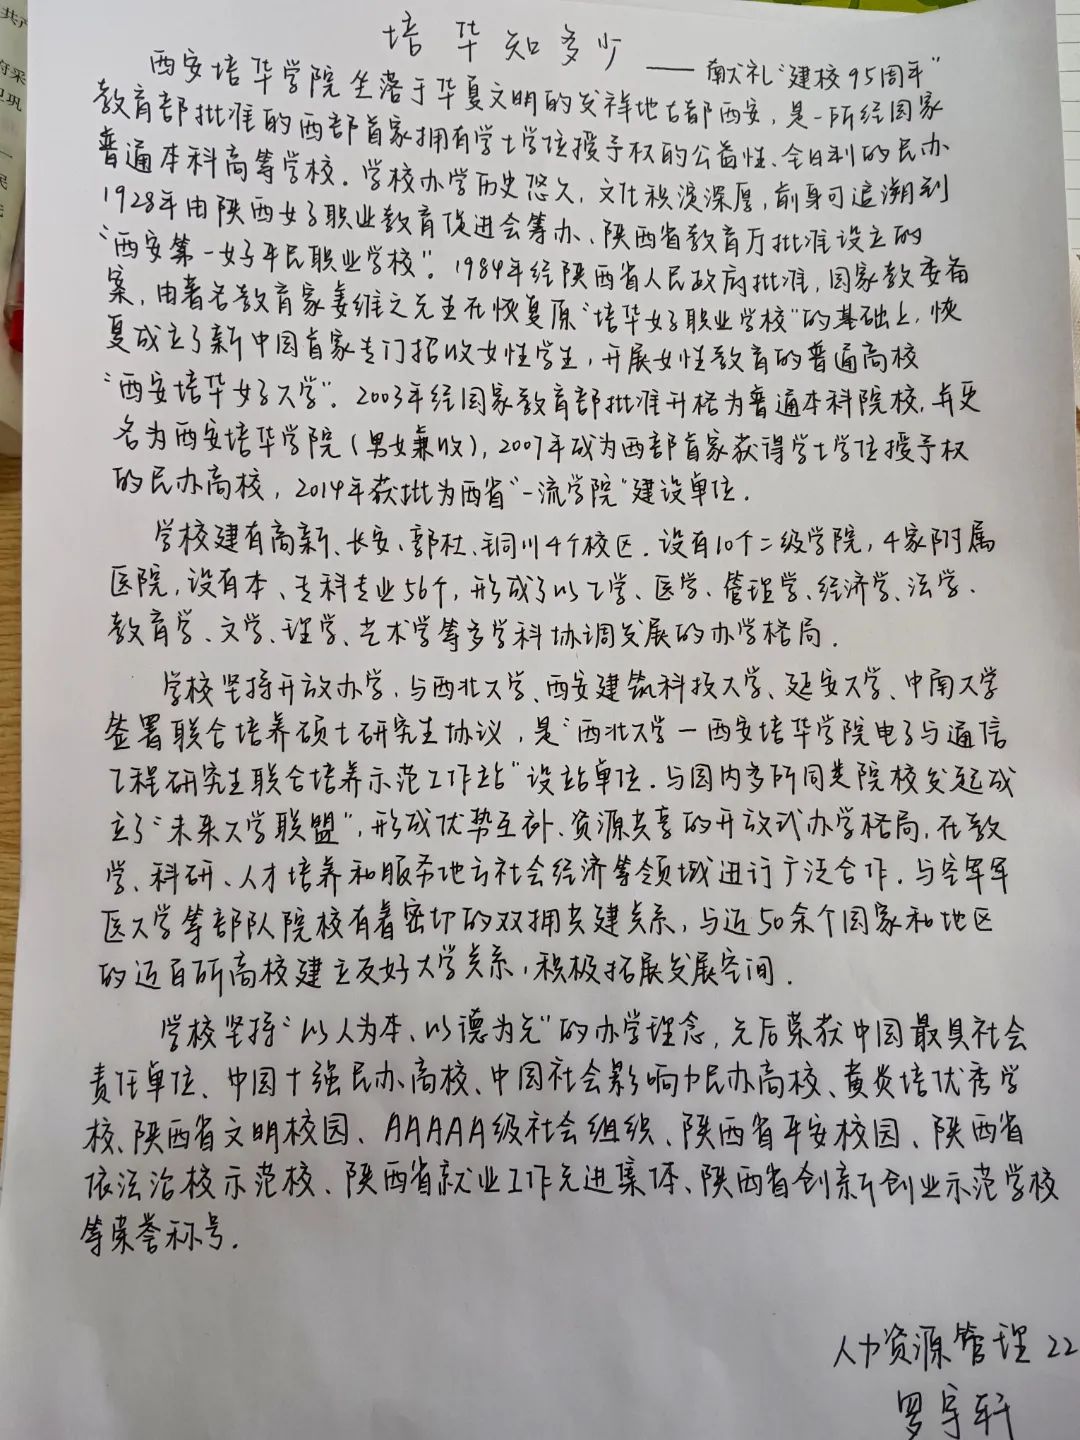 培华知多少
——献礼“建校95周年”
西安培华学院坐落于华夏文明的发祥地古都西安，是一所经国家
教育部批准的西部首家拥有学士学位授予权的公益性、全日制的民办
普通本科高等学校．学校办学历史悠久，文化积淀深厚，前身可追溯到
1928年由陕西女子职业教育促进会筹办、陕西省教育厅批准设立的
“西安第一女子平民职业学校”．1984年经陕西省人民政府批准，国家教委备
案，由著名教育家姜维之先生在恢复原“培华女子职业学校”的基础上，恢
复成立了新中国首家专门招收女性学生，开展女性教育的普通高校
“西安培华女子大学”．2003年经国家教育部批准升格为普通本科院校，并更
名为西安培华学院（男女兼收），2007年成为西部首家获得学士学位授予权
的民办高校，2014年获批为西省“一流学院”建设单位．
学校建有高新、长安、郭杜、铜川4个校区．设有10个二级学院，4家附属
医院，设有本、专科专业56个，形成了以工学、医学、管理学、经济学、法学、
教育学、文学、理学、艺术学等多学科协调发展的办学格局．
学校坚持开放办学，与西北大学、西安建筑科技大学、延安大学、中南大学
签署联合培养硕士研究生协议，是“西北大学－西安培华学院电子与通信
工程研究生联合培养示范工作站”设站单位．与国内多所同类院校发起成
立了“未来大学联盟”，形成优势互补、资源共享的开放式办学格局，在教
学、科研、人才培养和服务地方社会经济等领域进行广泛合作．与空军军
医大学等部队院校有着密切的双拥共建关系，与近50余个国家和地区
的近百所高校建立友好大学关系，积极拓展发展空间．
学校坚持“以人为本、以德为先”的办学理念，先后荣获中国最具社会
责任单位、中国十强民办高校、中国社会影响力民办高校、黄炎培优秀学
校、陕西省文明校园、AAAAA级社会组织、陕西省平安校园、陕西省
依法治校示范校、陕西省就业工作先进集体、陕西省创新创业示范学校
等荣誉称号．
人力资源管理22
罗宇轩